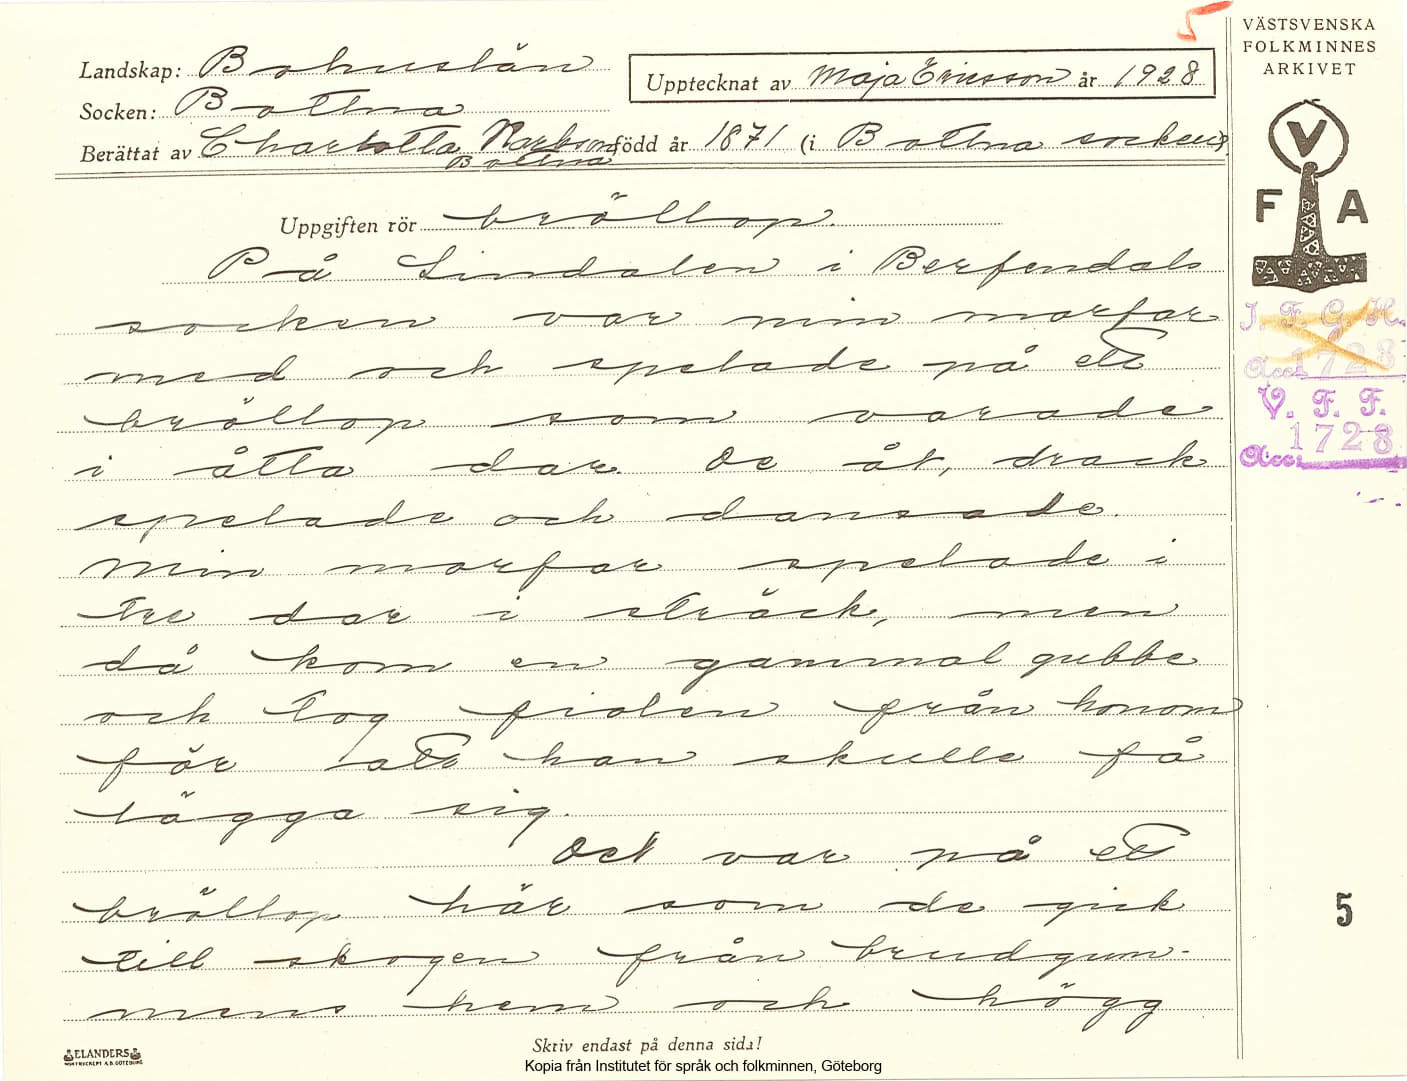 5
VÄSTSVENSKA
FOLKMINNES
ARKIVET
Landskap: Bohuslän
Upptecknat av Maja Ericsson år 1928
Socken: Bottna
Berättat av Charlotta född år 1871 (i Bottna socken)
Bottna
V
F A
Uppgiften rör bröllop.
På Lindalen i Berfendals
socken var min morfar
med och spelade på ett
bröllop som varade
i åtta dar. De åt, drack
spelade och dansade.
Min morfar spelade i
tre dar i sträck, men
då kom en gammal gubbe
och tog fiolen från honom
för att han skulle få
lägga sig.
Det var på ett
bröllop här som de gick
till skogen från brudgum-
mens hem och högg
I. F. G. H.
Acc. 1728
V. F. F.
1728
Acc:
5
Skriv endast på denna sida!
ELANDERS
Kopia från Institutet för språk och folkminnen, Göteborg